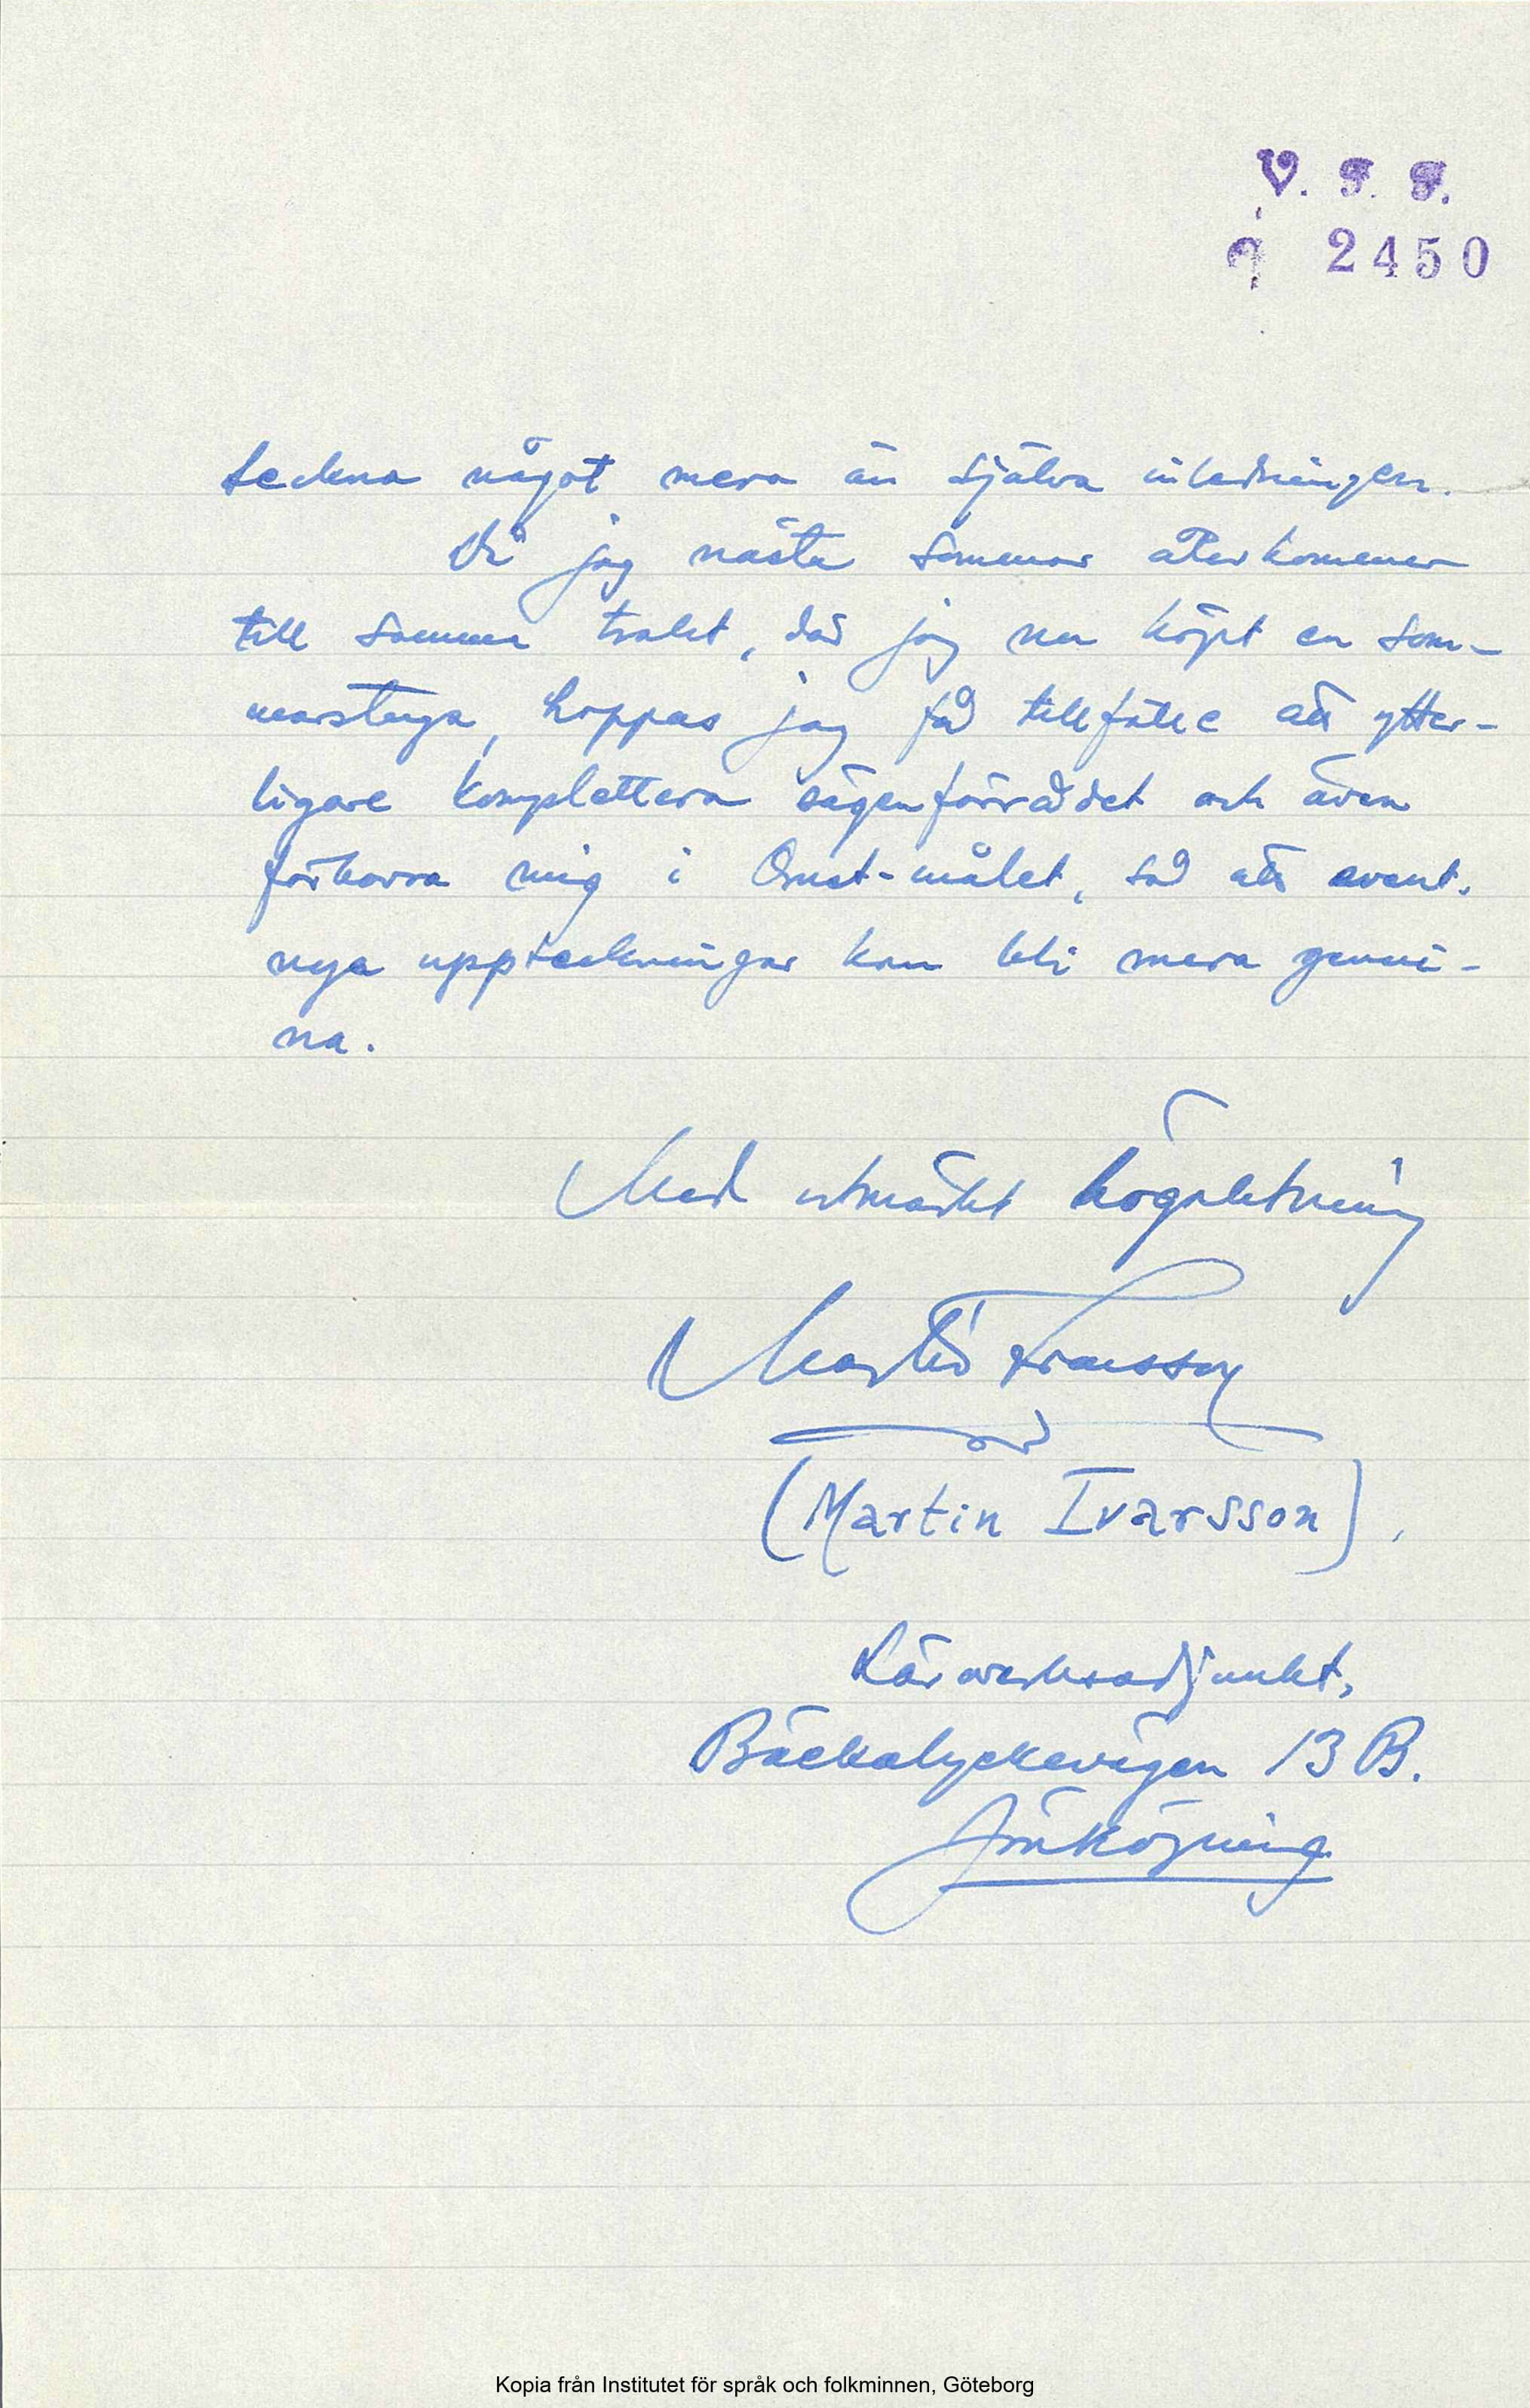 V. F. F.
2450
teckna något mera än själva inledningen.
Då jag nästa sommar återkommer
till samma trakt, där jag nu köpt en som-
marstuga, hoppas jag få tillfälle att ytter-
ligare komplettera sägenförrådet och även
förkovra mig i Orust-målet, så att event.
nya uppteckningar kan bli mera genui-
na.
Med utmärkt högaktning
Martin Ivarsson
(Martin Ivarsson).
Läroverksadjunkt,
Bäckalyckevägen 13 B.
Jönköping
Kopia från Institutet för språk och folkminnen, Göteborg